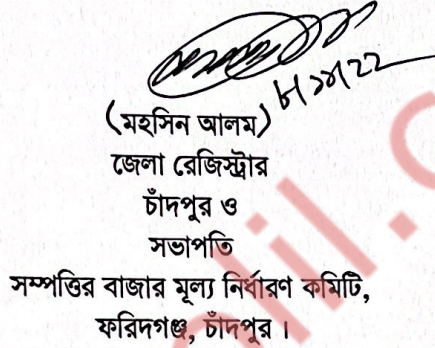 ৮/১২/২২
(মহসিন আলম)
জেলা রেজিস্ট্রার
চাঁদপুর ও
সভাপতি
সম্পত্তির বাজার মূল্য নির্ধারণ কমিটি,
ফরিদগঞ্জ, চাঁদপুর ।